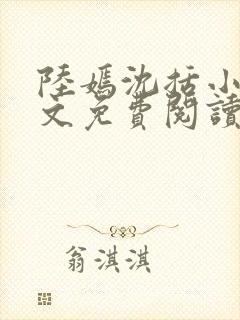 陸嫣沈括小
文免費閱讀
翁淇淇